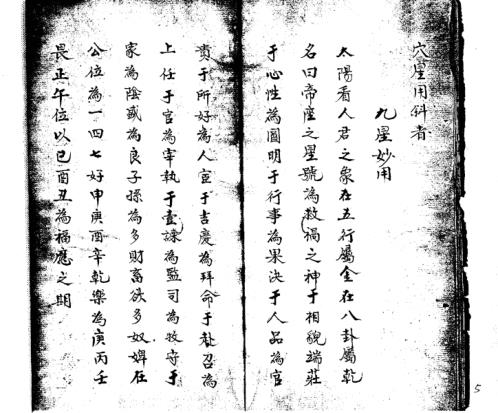 穴星用斜者
九星妙用
太陽看人君之象在五行屬金在八卦屬乾
名曰帝座之星號為救禍之神于相貌端莊
于心性為圓明于行事為果決于人品為官
貴于所好為人宣于吉慶為拜命于赴召為
上任于官為宰執于臺諫為監司為牧守于
家為陰或為良子孫為多財畜欲多奴婢在
公位為一四七好申庚酉辛乾樂為庚丙壬
畏正午位以巳酉丑為福應之期
5